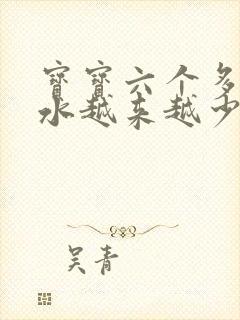 寶寶六个多
水越来越少
吴青